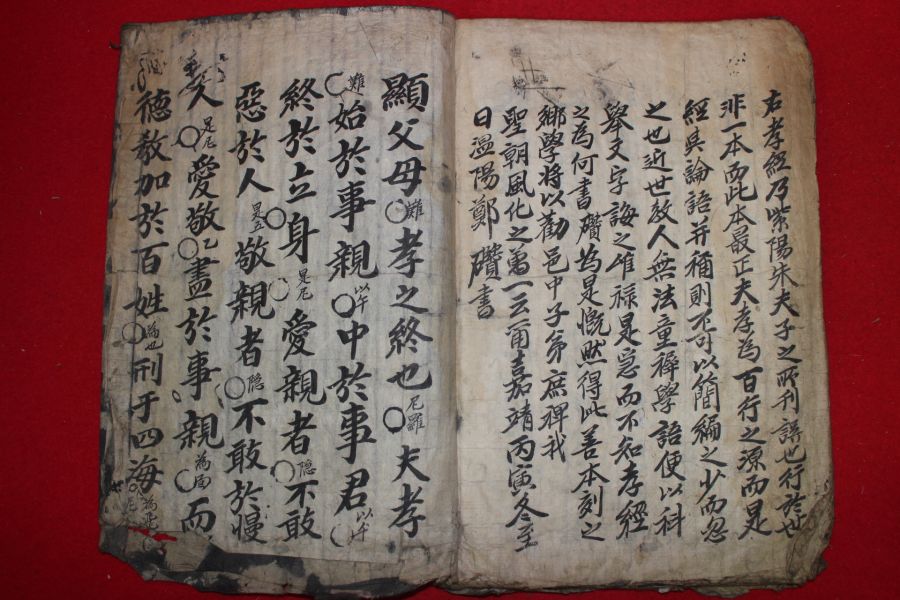 右孝經乃紫陽朱夫子之所刊誤也行於世
非一本而此本最正夫孝為百行之源而是
經與論語并稱則不可以簡編之少而忽
之也近世教人無法童稺學語便以科
舉文字誨之惟祿是急而不知孝經
之為何書礸為是慨然得此善本刻之
鄉學將以勸邑中子弟庶裨我
聖朝風化之萬一云爾嘉靖丙寅冬至
日溫陽鄭礸書
顯父母○難孝之終也○尼羅夫孝
○難始於事親○以午中於事君○以午
終於立身○是尼愛親者○隐不敢
惡於人○是五敬親者○隐不敢於慢
人○是尼愛敬○乙盡於事親○為而
德教加於百姓○為也刑于四海